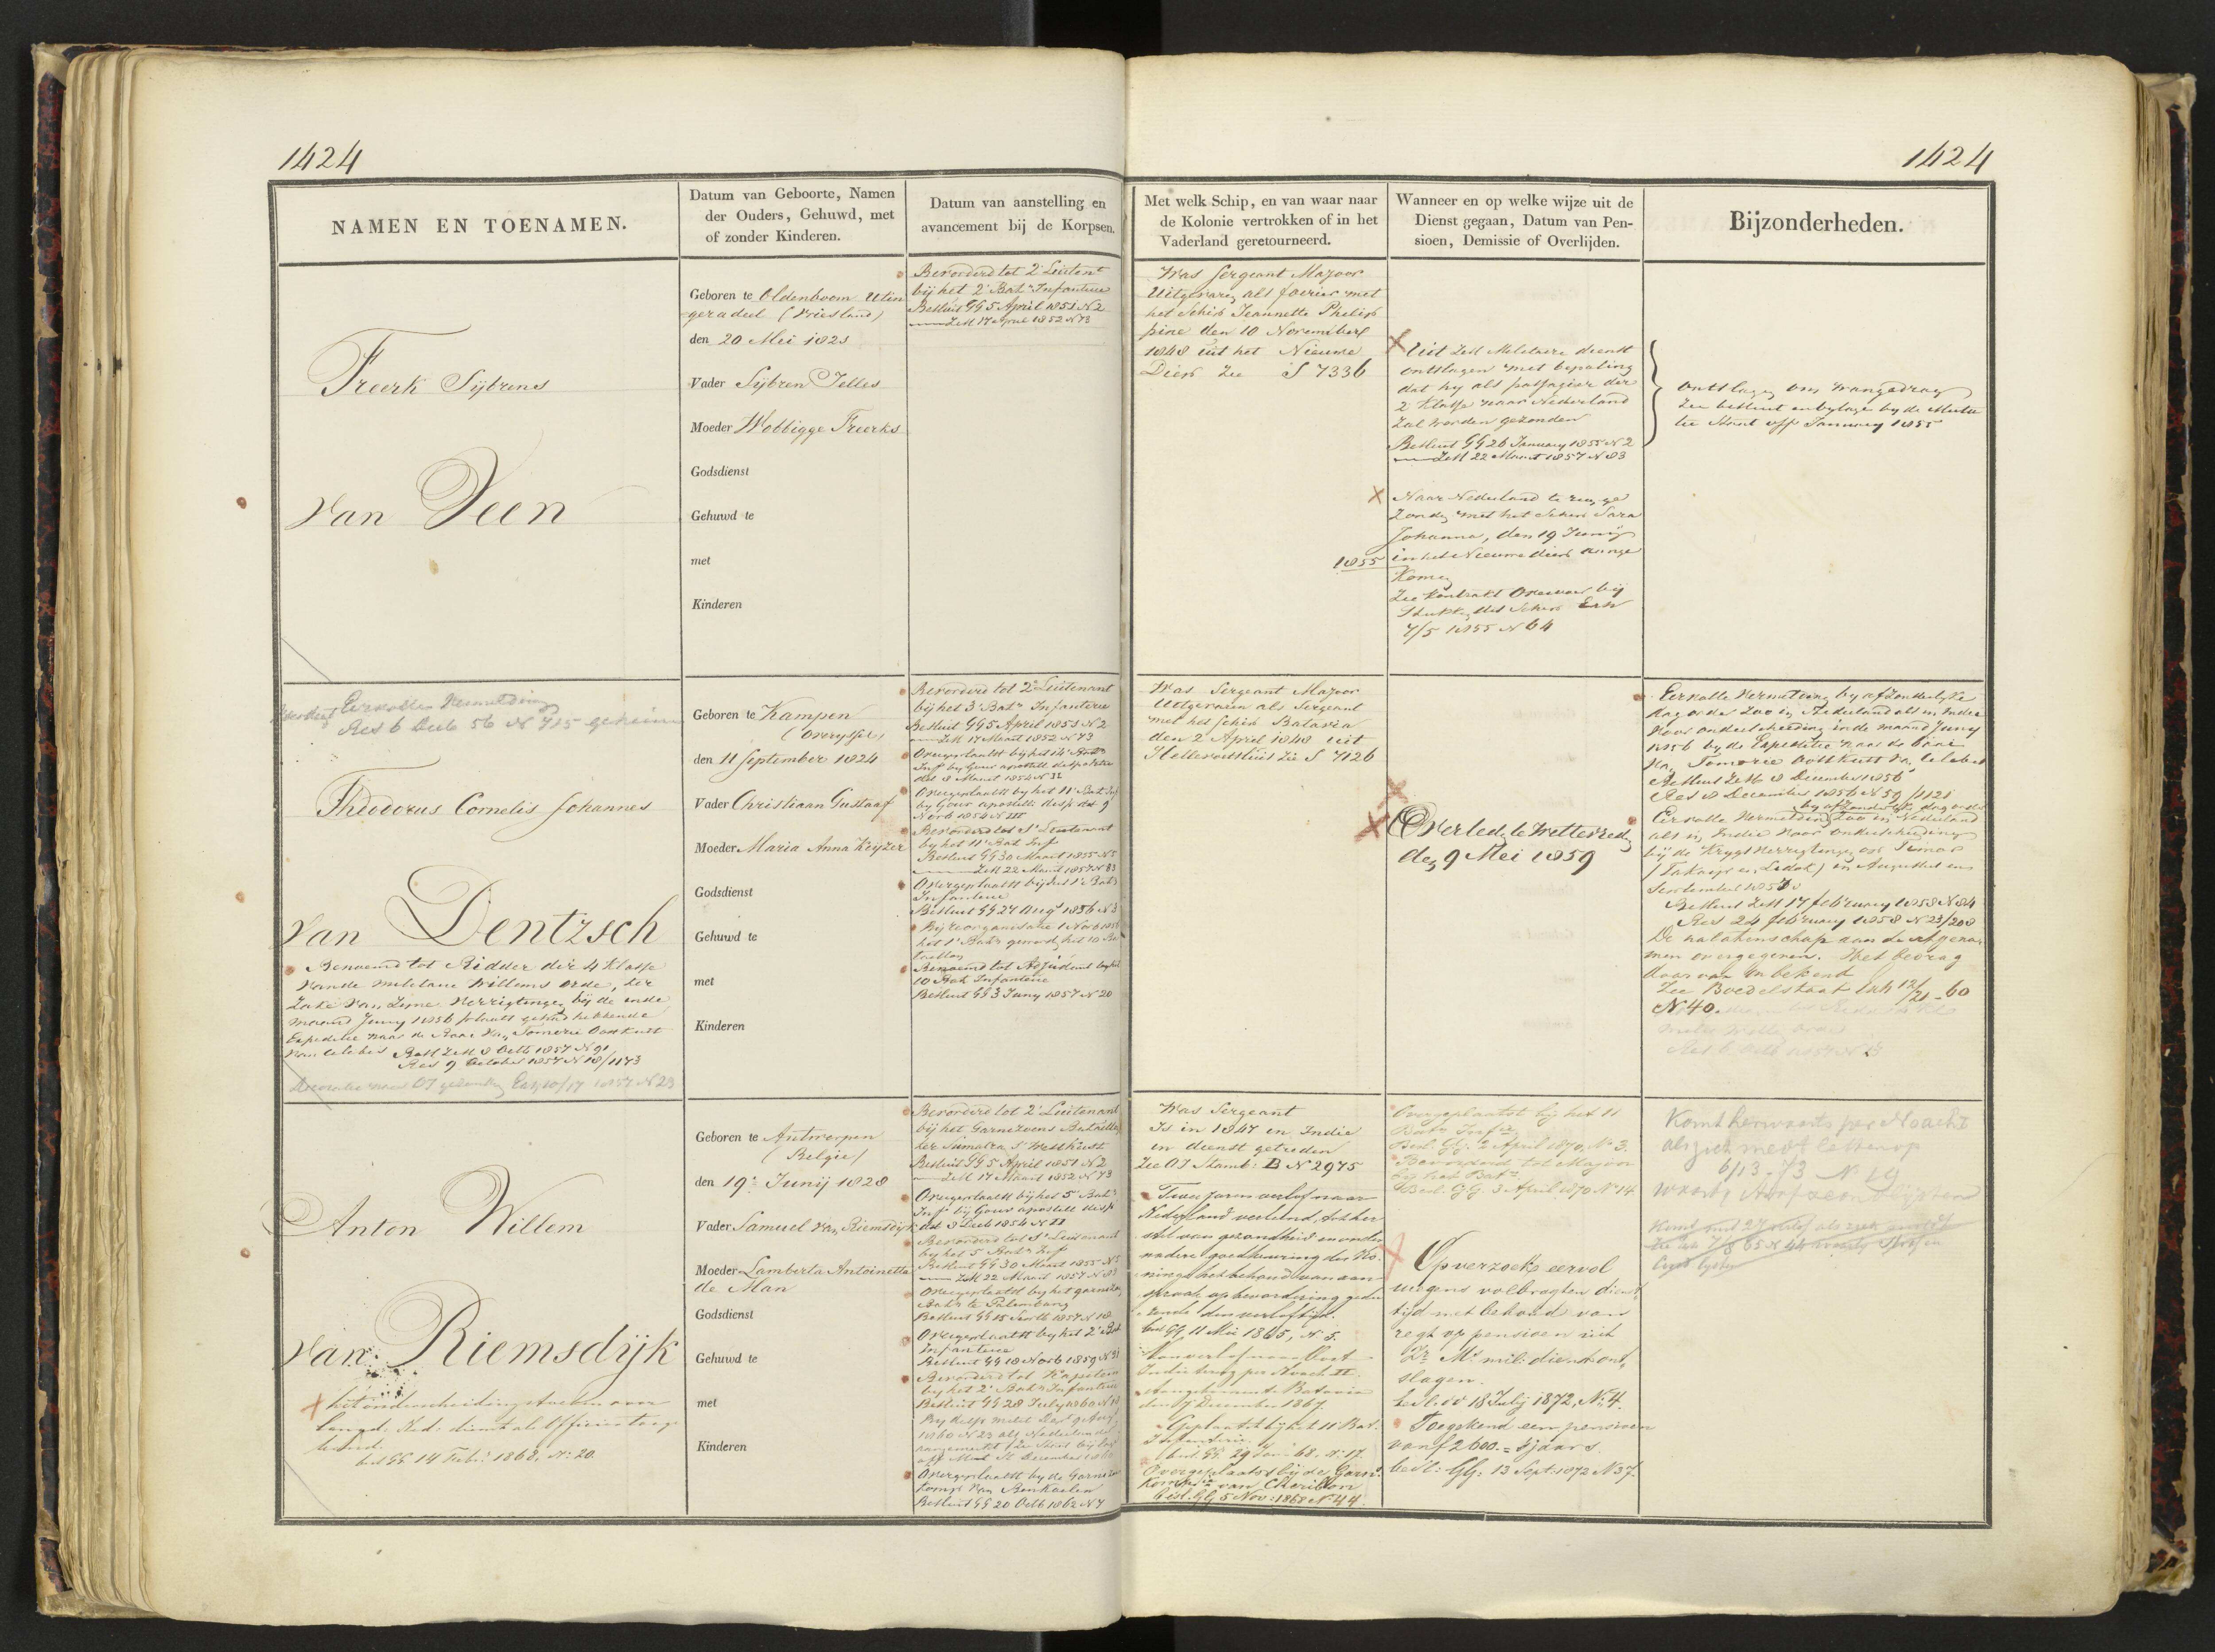 1424
1424
NAMEN EN TOENAMEN.
Datum van Geboorte, Namen
der Ouders, Gehuwd, met
of zonder Kinderen.
Datum van aanstelling en
avancement bij de Korpsen.
Met welk Schip, en van waar naar
de Kolonie vertrokken of in het
Vaderland geretourneerd.
Wanneer en op welke wijze uit de
Dienst gegaan, Datum van Pen-
sioen, Demissie of Overlijden.
Bijzonderheden.
Freerk Sijbrens
van Veen
Geboren te Oldenboorn Utin
geradeel (Vriesland)
den 20 Mei 1823
Vader Sijbren Jelles
Moeder Wobbigge Freerks
Godsdienst
Gehuwd te
met
Kinderen
Bevorderd tot 2e Luitent
bij het 2e Batn Infanterie
Besluit GG 5 April 1851 N 2
ZeM 17 April 1852 N 73
Was Sergeant Majoor
Uitgevaren als foerier met
het Schip Jeannette Philip
pine den 10 November
1848 uit het Nieuwe
Diep Zie S 7336
Uit ZeM Militaire dienst
ontslagen met bepaling
dat hij als passagier der
2e Klasse naar Nederland
zal worden gezonden
Besluit GG 26 January 1855 N 2
ZeM 22 Maart 1857 N 83
Naar Nederland te rug ge
zonden met het Schip Sara
Johanna, den 19 Junij
1855 in het Nieuwe diep aange
komen
Zie Kontrakt Overvoer bij
Stukken des Schips Exh
7/5 1855 N 64
ontslagen om wangedrag
Zie besluit en bylage by de Mutatie
tie Staat off January 1855
Eervolle Vermelding
Res 6 Decb 56 N 715 geheim
Theodorus Cornelis Johannes
van Dentzsch
Benoemd tot Ridder der 4 Klasse
van de militaire Willems orde, ter
zake van zijne verrigtingen bij de in de
maand Juny 1856 plaats gehad hebbende
Expeditie naar de Baai van Tomorie Oostkust
van Celebes Besl ZeM 8 Octb 1857 N 91
Res 9 October 1857 N 18/1173
Decoratie naar OI gezonden Exh 10/17 1857 N 23
Geboren te Kampen
(Overyssel)
den 11 September 1824
Vader Christiaan Gustaaf
Moeder Maria Anna Keijzer
Godsdienst
Gehuwd te
met
Kinderen
Bevorderd tot 2e Luitenant
bij het 3e Batn Infanterie
Besluit GG 5 April 1851 N 2
ZeM 17 Maart 1852 N 73
Overgeplaatst bij het 14e Batn
Inf by Gouv apostille dispositie
dd 8 Maart 1854 N 32
Overgeplaatst by het 11e Bat Inf
by Gouv apostille disp dd 9
Novb 1854 N III
Bevorderd tot 1e Luitenant
by het 11e Bat Inf
Besluit GG 30 Maart 1855 N 5
ZeM 22 Maart 1857 N 83
Overgeplaatst bij het 1e Batn
Infanterie
Besluit GG 27 Aug 1856 N 3
By reorganisatie 1 Novb 1856
het 1e Batn geword. het 10 Ba
taillon
Benoemd tot Adjudant by het
10 Bat Infanterie
Besluit GG 3 Juny 1857 N 20
Was Sergeant Majoor
Uitgevaren als Sergeant
met het Schip Batavia
den 2 April 1848 uit
Hellevoetsluis Zie S 7126
Overleden te Weltevreden
den 9 Mei 1859
Eervolle Vermelding by afzonderlyke
dag order zoo in Nederland als in Indie
voor onderscheiding in de maand Juny
1856 by de Expeditie naar de baai
van Tomorie Oostkust van Celebes
Besluit ZeM 8 December 1856
Res 8 December 1856 N 59/1121
by afzonderlyke dag order
Eervolle Vermelding zoo in Nederland
als in Indie voor onderscheiding
bij de krygs verrigtingen op Timor
in Augustus en
September 1857
Besluit ZeM 17 february 1858 N 84
Res 24 february 1858 N 23/208
De nalatenschap aan de erfgena-
men overgegeven. Het bedrag
daarvan onbekend
Zie Boedelstaat Exh 12/21 - 60
N 40.
Anton Willem
van Riemsdijk
het onderscheidingsteeken voor
langd: Ned: dienst als Officier toege
kend.
besl GG 14 Feb: 1868, N: 20.
Geboren te Antwerpen
(Belgie)
den 19e Junij 1828
Vader Samuel van Riemsdijk
Moeder Lamberta Antoinetta
de Man
Godsdienst
Gehuwd te
met
Kinderen
Bevorderd tot 2e Luitenant
bij het Garnizoens Bataillon
ter Sumatra's Westkust
Besluit GG 5 April 1851 N 2
ZeM 17 Maart 1852 N 73
Overgeplaatst bij het 5e Batn
Inf bij Gouv apostille disp
dd 3 Decb 1854 N II
Bevorderd tot 1e Luitenant
by het 5 Batn Inf
Besluit GG 30 Maart 1855 N 5
ZeM 22 Maart 1857 N 83
Overgeplaatst by het garnizoen
Batn te Palembang
Besluit GG 15 Novb 1857 N 18
Overgeplaatst by het 2e Bat
Infanterie
Besluit GG 18 Novb 1859 N 31
Bevorderd tot Kapitein
by het 2e Batn Infanterie
Besluit GG 28 July 1860 N 18
Overgeplaatst by de Garnizoens
komp van Benkoelen
Besluit GG 20 Octb 1862 N 7
Was Sergeant
Is in 1847 in Indie
in dienst getreden
Zie OI Stamb: B N 2975
Twee jaren verlof naar
Nederland verleend, tot her
stel van gezondheid en onder
nadere goedkeuring des Ko-
nings het behoud van aan-
spraak op bevordering gedu
rende dien verloftijd.
besl GG, 11 Mei 1865, N. 5.
Van verlof naar Oost
Indie terug per Noach II.
Aangekomen te Batavia
den 7 December 1867.
Geplaatst bij het 11e Bat.
Infanterie.
besl. GG. 29 Jan: 68. N: 17.
Overgeplaatst bij de Garn:
Kompie van Cheribon
besl. GG 5 Nov: 1868 N: 44.
Overgeplaatst bij het 11
Batn Infie
Besl. GG. 2 April 1870, N: 3.
Bevorderd tot Majoor
bij het Batn
Besl. GG. 3 April 1870 N: 14
Op verzoek eervol
wegens volbragten dienst
tijd met behoud van
regt op pensioen uit
Zr Ms mil: dienst ont-
slagen.
besl: dd 18 Julij 1872, N: 4.
Toegekend een pensioen
van f 2000.= 'sjaars.
besl: GG. 13 Sept: 1872 N 37.
Komt herwaarts per Noach I
als ziek
6/13 - 73 N 19